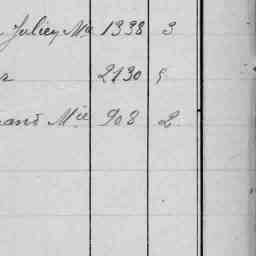 Julien Ma 1338 3
2130 5
and Mie 903 2